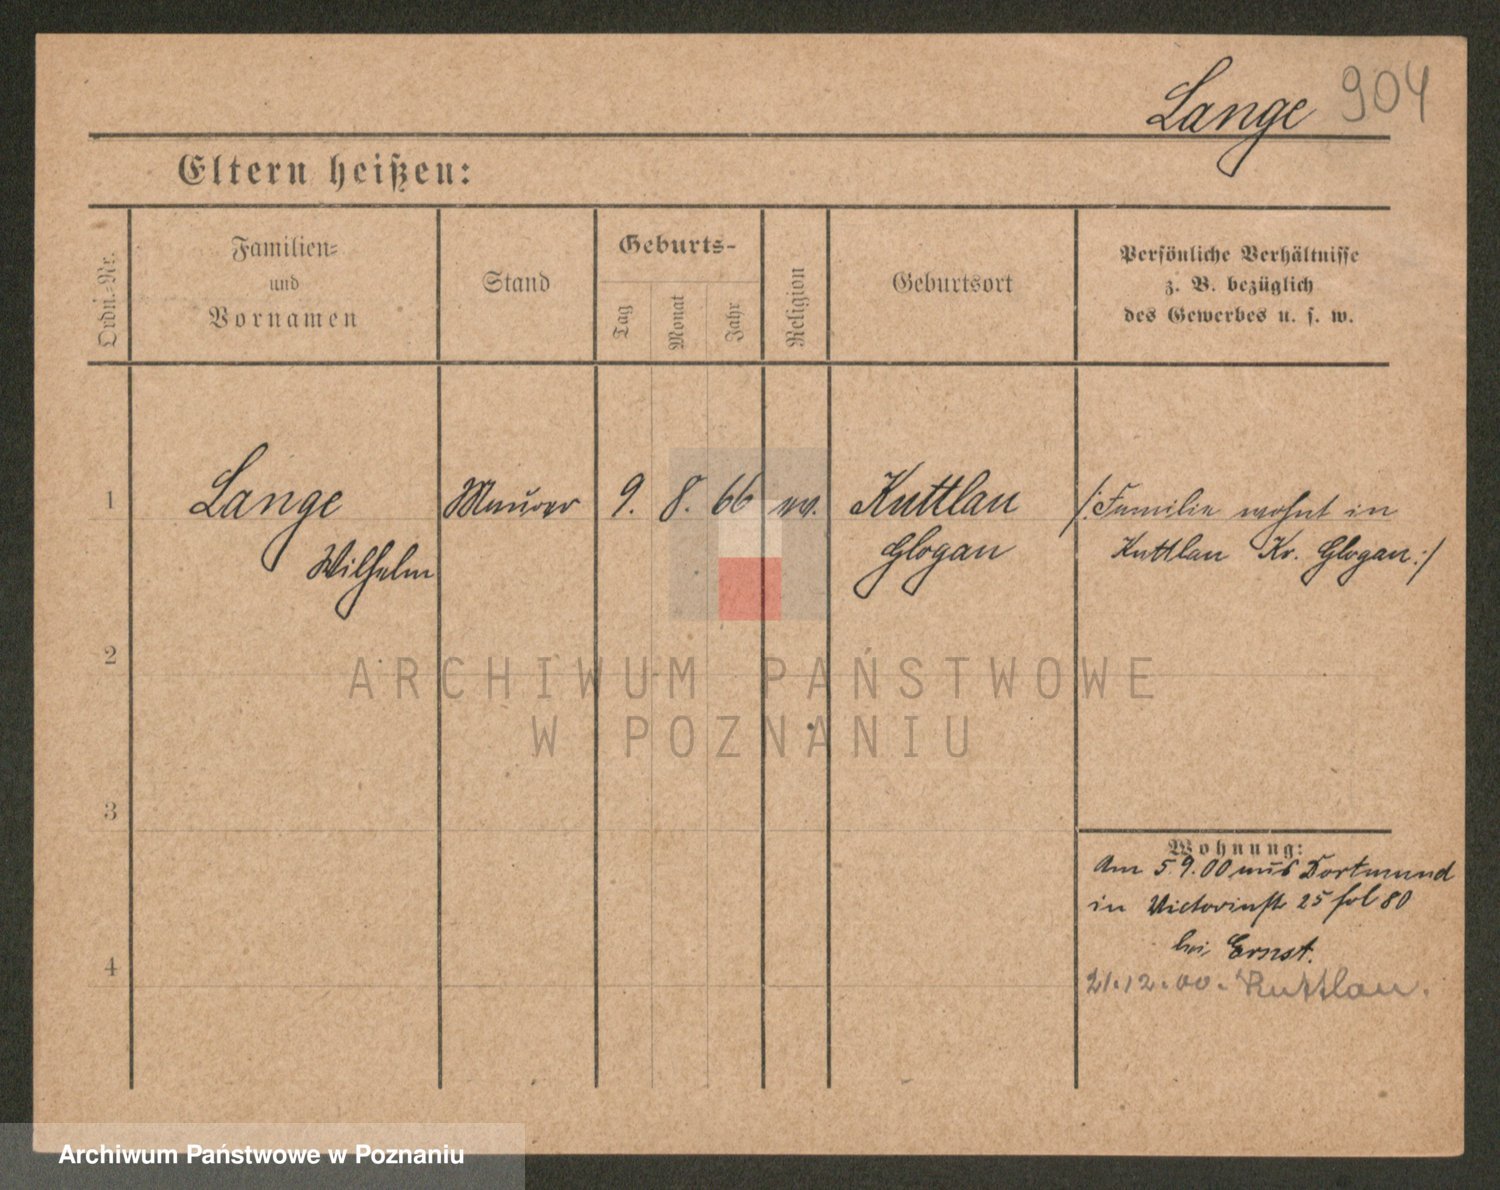 Lange 904
Eltern heißen:
Ordn.-Nr.
Familien-
und
Vornamen
Stand
Geburts-
Tag
Monat
Jahr
Religion
Geburtsort
Persönliche Verhältnisse
z. B. bezüglich
des Gewerbes u. s. w.
1 Lange Maurer 9. 8. 66 ev. Kuttlau /: Familie wohnt in
Wilhelm Glogau Kuttlau Kr. Glogau :/
2
ARCHIWUM PAŃSTWOWE
W POZNANIU
3
Wohnung:
Am 5.9.00 aus Dortmund
in Victoriastr 25 fol 80
bei Ernst.
4
21.12.00. Kuttlau.
Archiwum Państwowe w Poznaniu